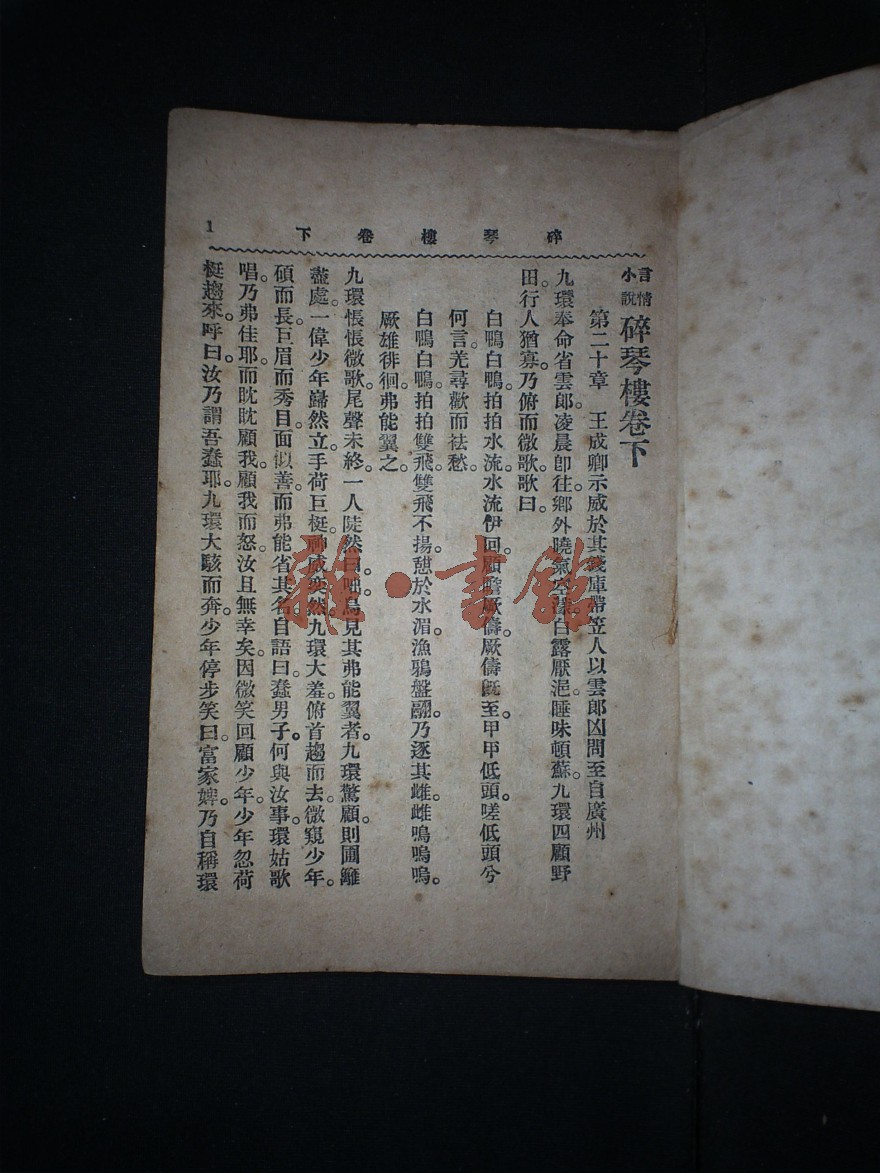 碎琴樓卷下
1
言情小說 碎琴樓卷下
第二十章 王成卿示威於其錢庫 帶笠人以雲郎凶問至自廣州
九環奉命省雲郎凌晨卽往鄉外曉氣空濛白露厭浥睡味頓蘇九環四顧野
田行人猶寡乃俯而微歌歌曰。
白鴨白鴨拍拍水流水流伊回顧瞻厥儔厥儔旣至甲甲低頭嗟低頭兮
何言羌尋歡而祛愁。
白鴨白鴨拍拍雙飛雙飛不揚憇於水湄漁鴉盤翮乃逐其雌雌鳴嗚嗚。
厥雄徘徊弗能翼之。
九環悵悵微歌尾聲未終一人陡然曰咄烏見其弗能翼者。九環驚顧則圃籬
盡處一偉少年巋然立手荷巨梃神威奕然九環大羞俯首趨而去微窺少年。
碩而長巨眉而秀目面似善而弗能省其名自語曰蠢男子何與汝事環姑歌
唱乃弗佳耶而眈眈顧我顧我而怒汝且無幸矣因微笑回顧少年少年忽荷
梃趨來呼曰汝乃謂吾蠢耶九環大駭而奔少年停步笑曰富家婢乃自稱環
雜·書館